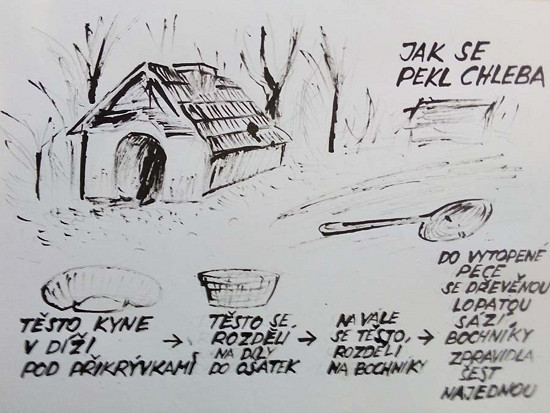 JAK SE
PEKL CHLEBA
TĚSTO KYNE
V DÍŽI
POD PŘIKRÝVKAMI
→
TĚSTO SE
ROZDĚLÍ
NA DÍLY
DO OŠATEK
→
NA VÁLE
SE TĚSTO
ROZDĚLÍ
NA BOCHNÍKY
→
DO VYTOPENÉ
PECE
SE DŘEVĚNOU
LOPATOU
SÁZÍ
BOCHNÍKY
ZPRAVIDLA
ŠEST
NAJEDNOU